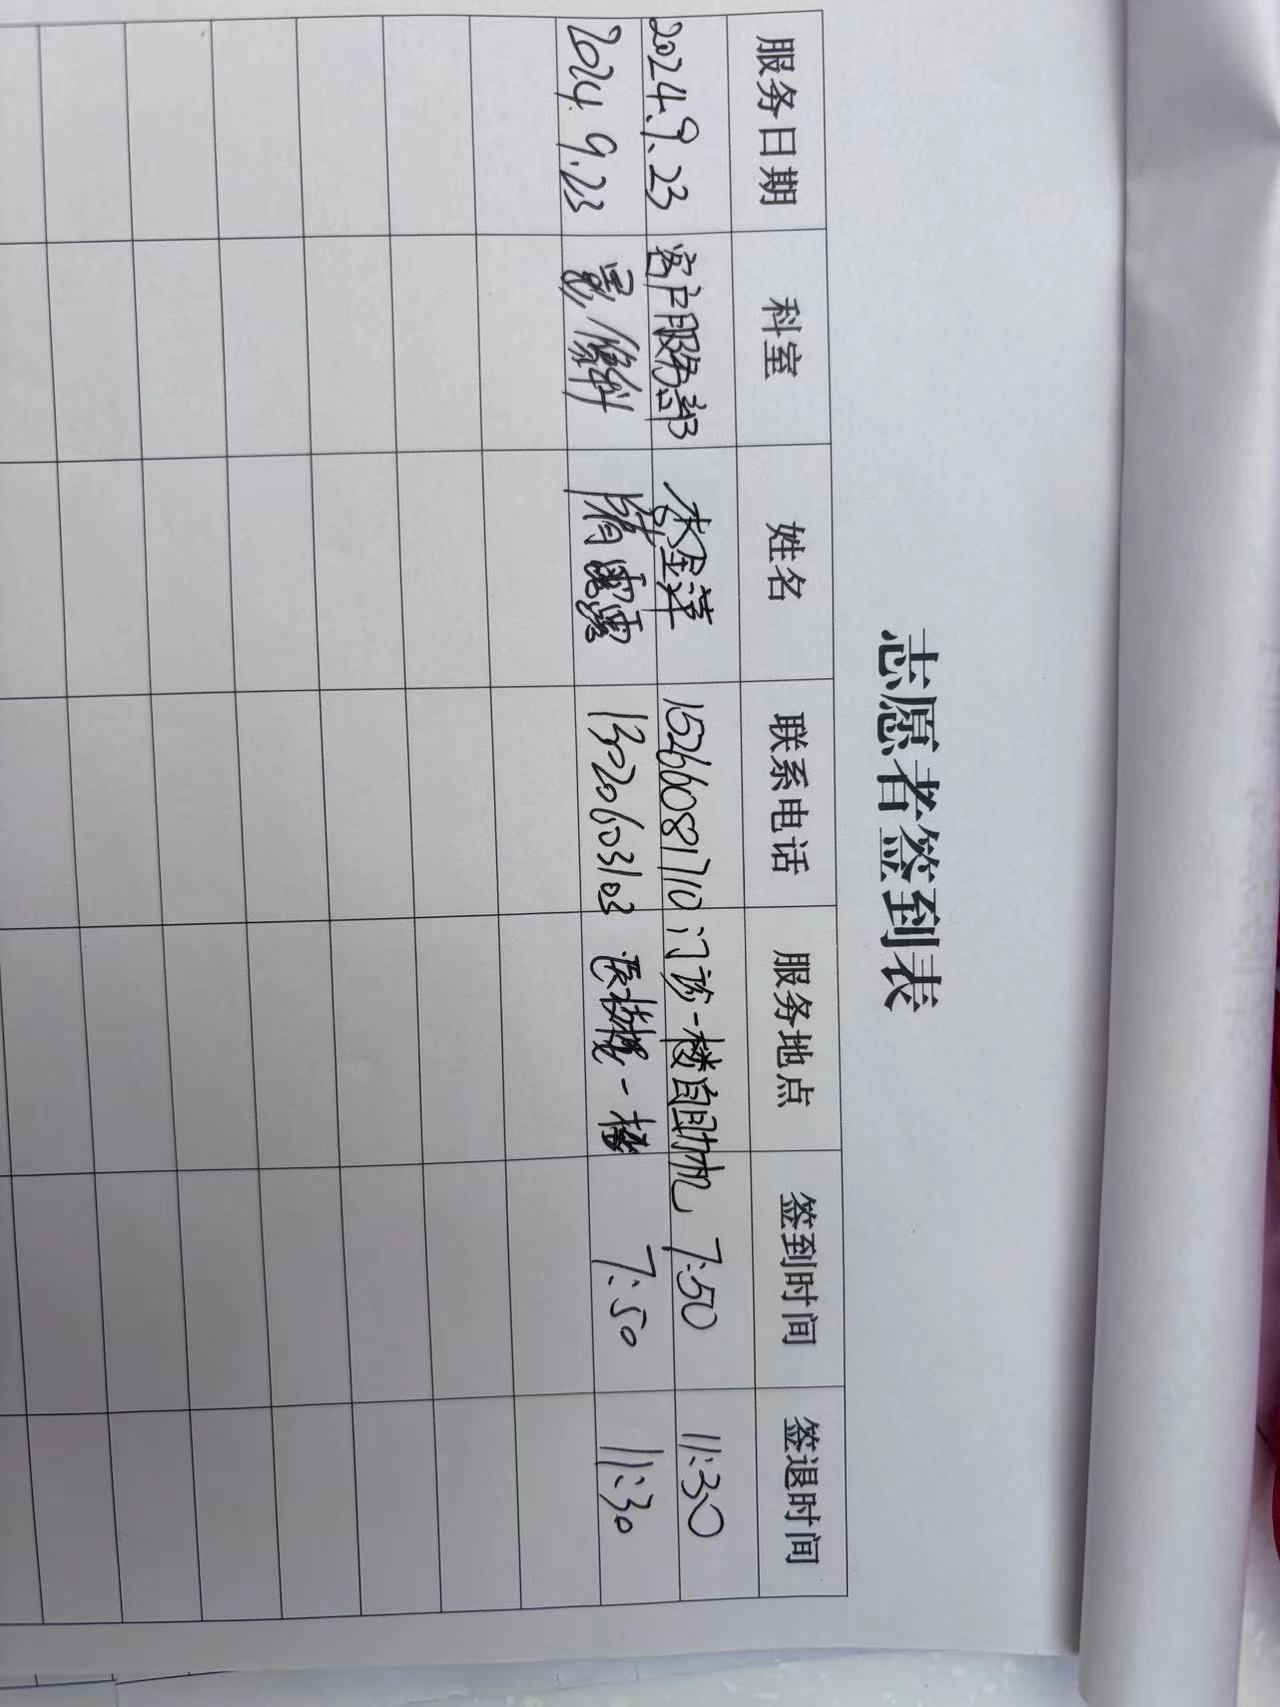 志愿者签到表
服务日期 科室 姓名 联系电话 服务地点 签到时间 签退时间
2024.9.23 客户服务部 15266081710 门诊一楼自助机 7:50 11:30
2024.9.23 影像科 隋露露 13020603103 医技楼一楼 7:50 11:30